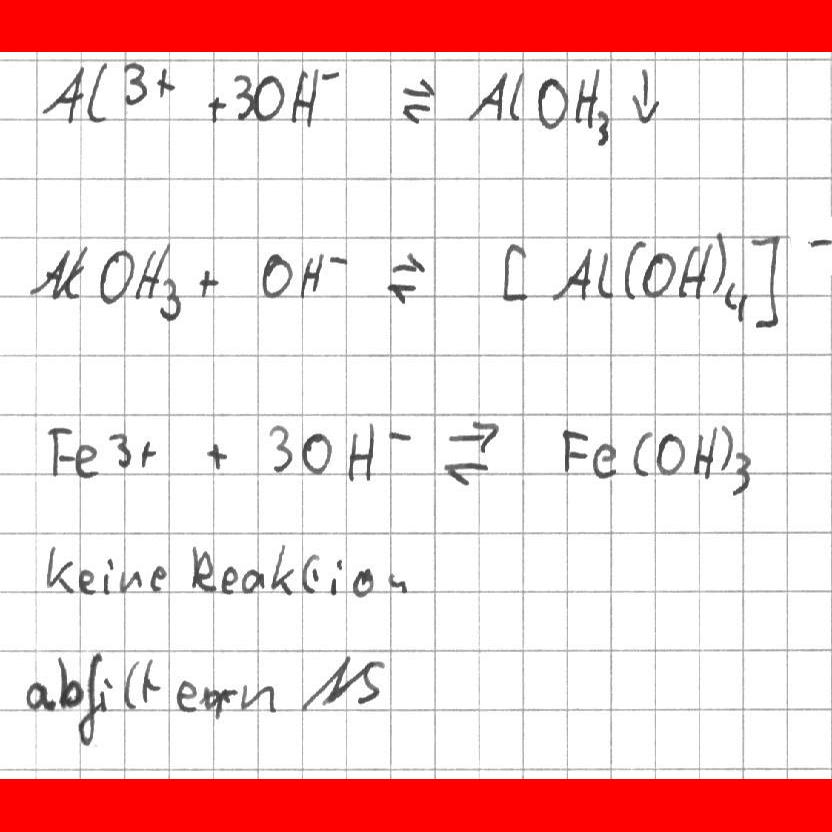 Al 3+ +3OH⁻ ⇌ AlOH₃ ↓
AlOH₃ + OH⁻ ⇌ [Al(OH)₄]⁻
Fe 3+ + 3OH⁻ ⇌ Fe(OH)₃
keine Reaktion
abfiltern NS